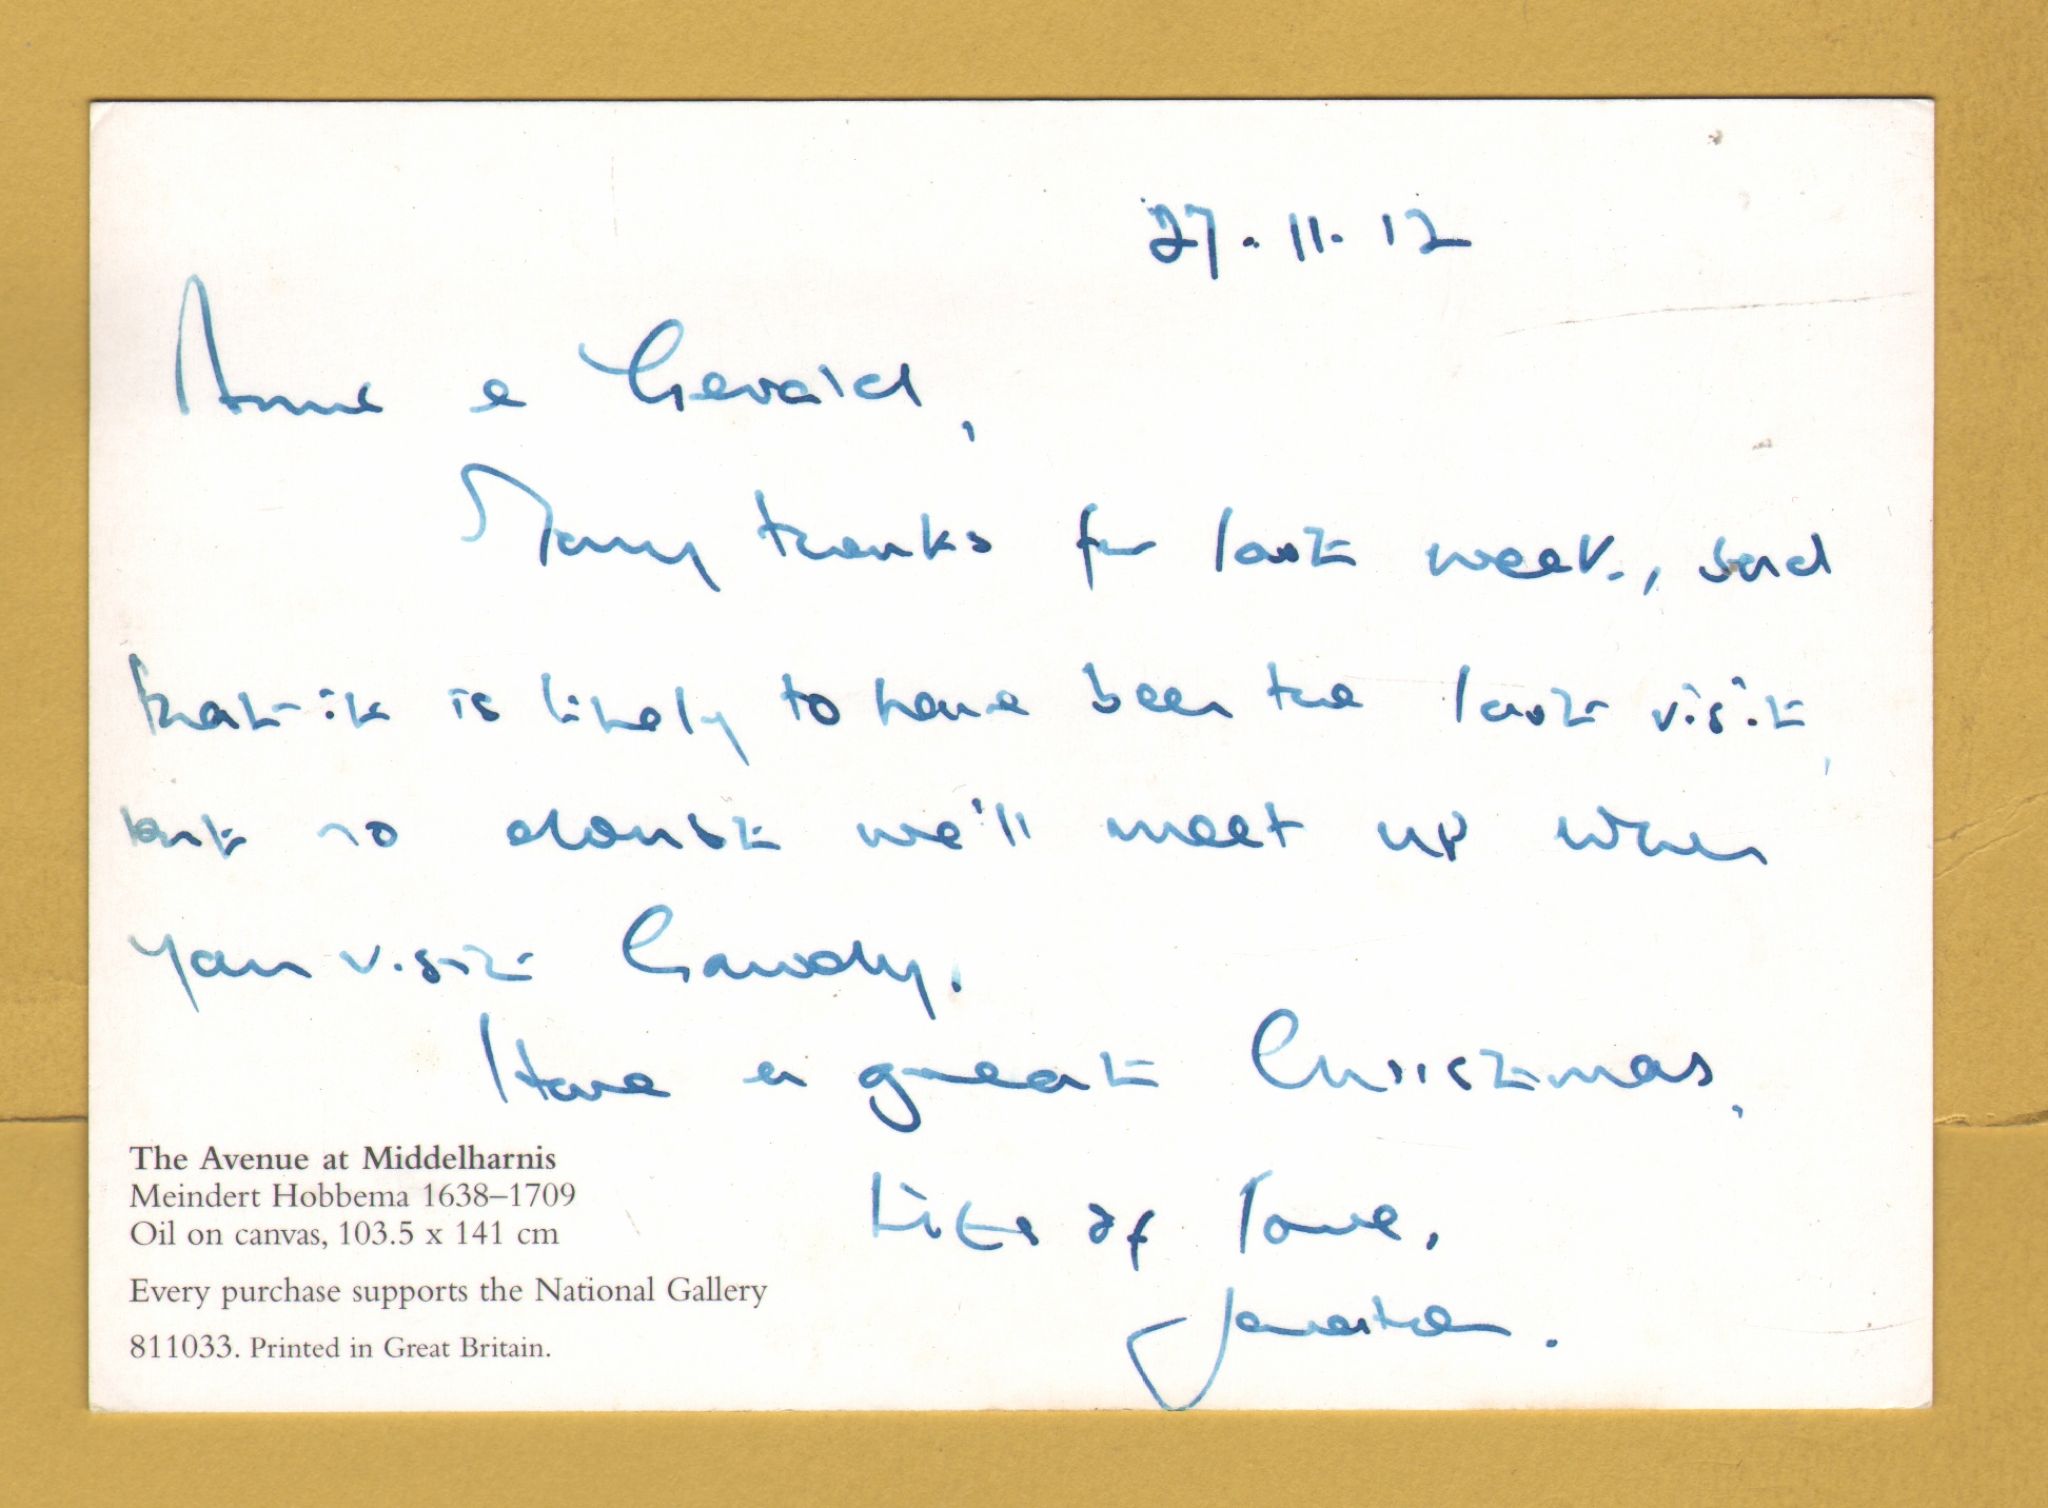 27.11.12
Anne & Gerald,
Many thanks for last week, sad
that it is likely to have been the last visit,
but no doubt we'll meet up when
you visit Gawdy.
Have a great Christmas,
Lots of love,
Jonathan.
The Avenue at Middelharnis
Meindert Hobbema 1638–1709
Oil on canvas, 103.5 x 141 cm
Every purchase supports the National Gallery
811033. Printed in Great Britain.